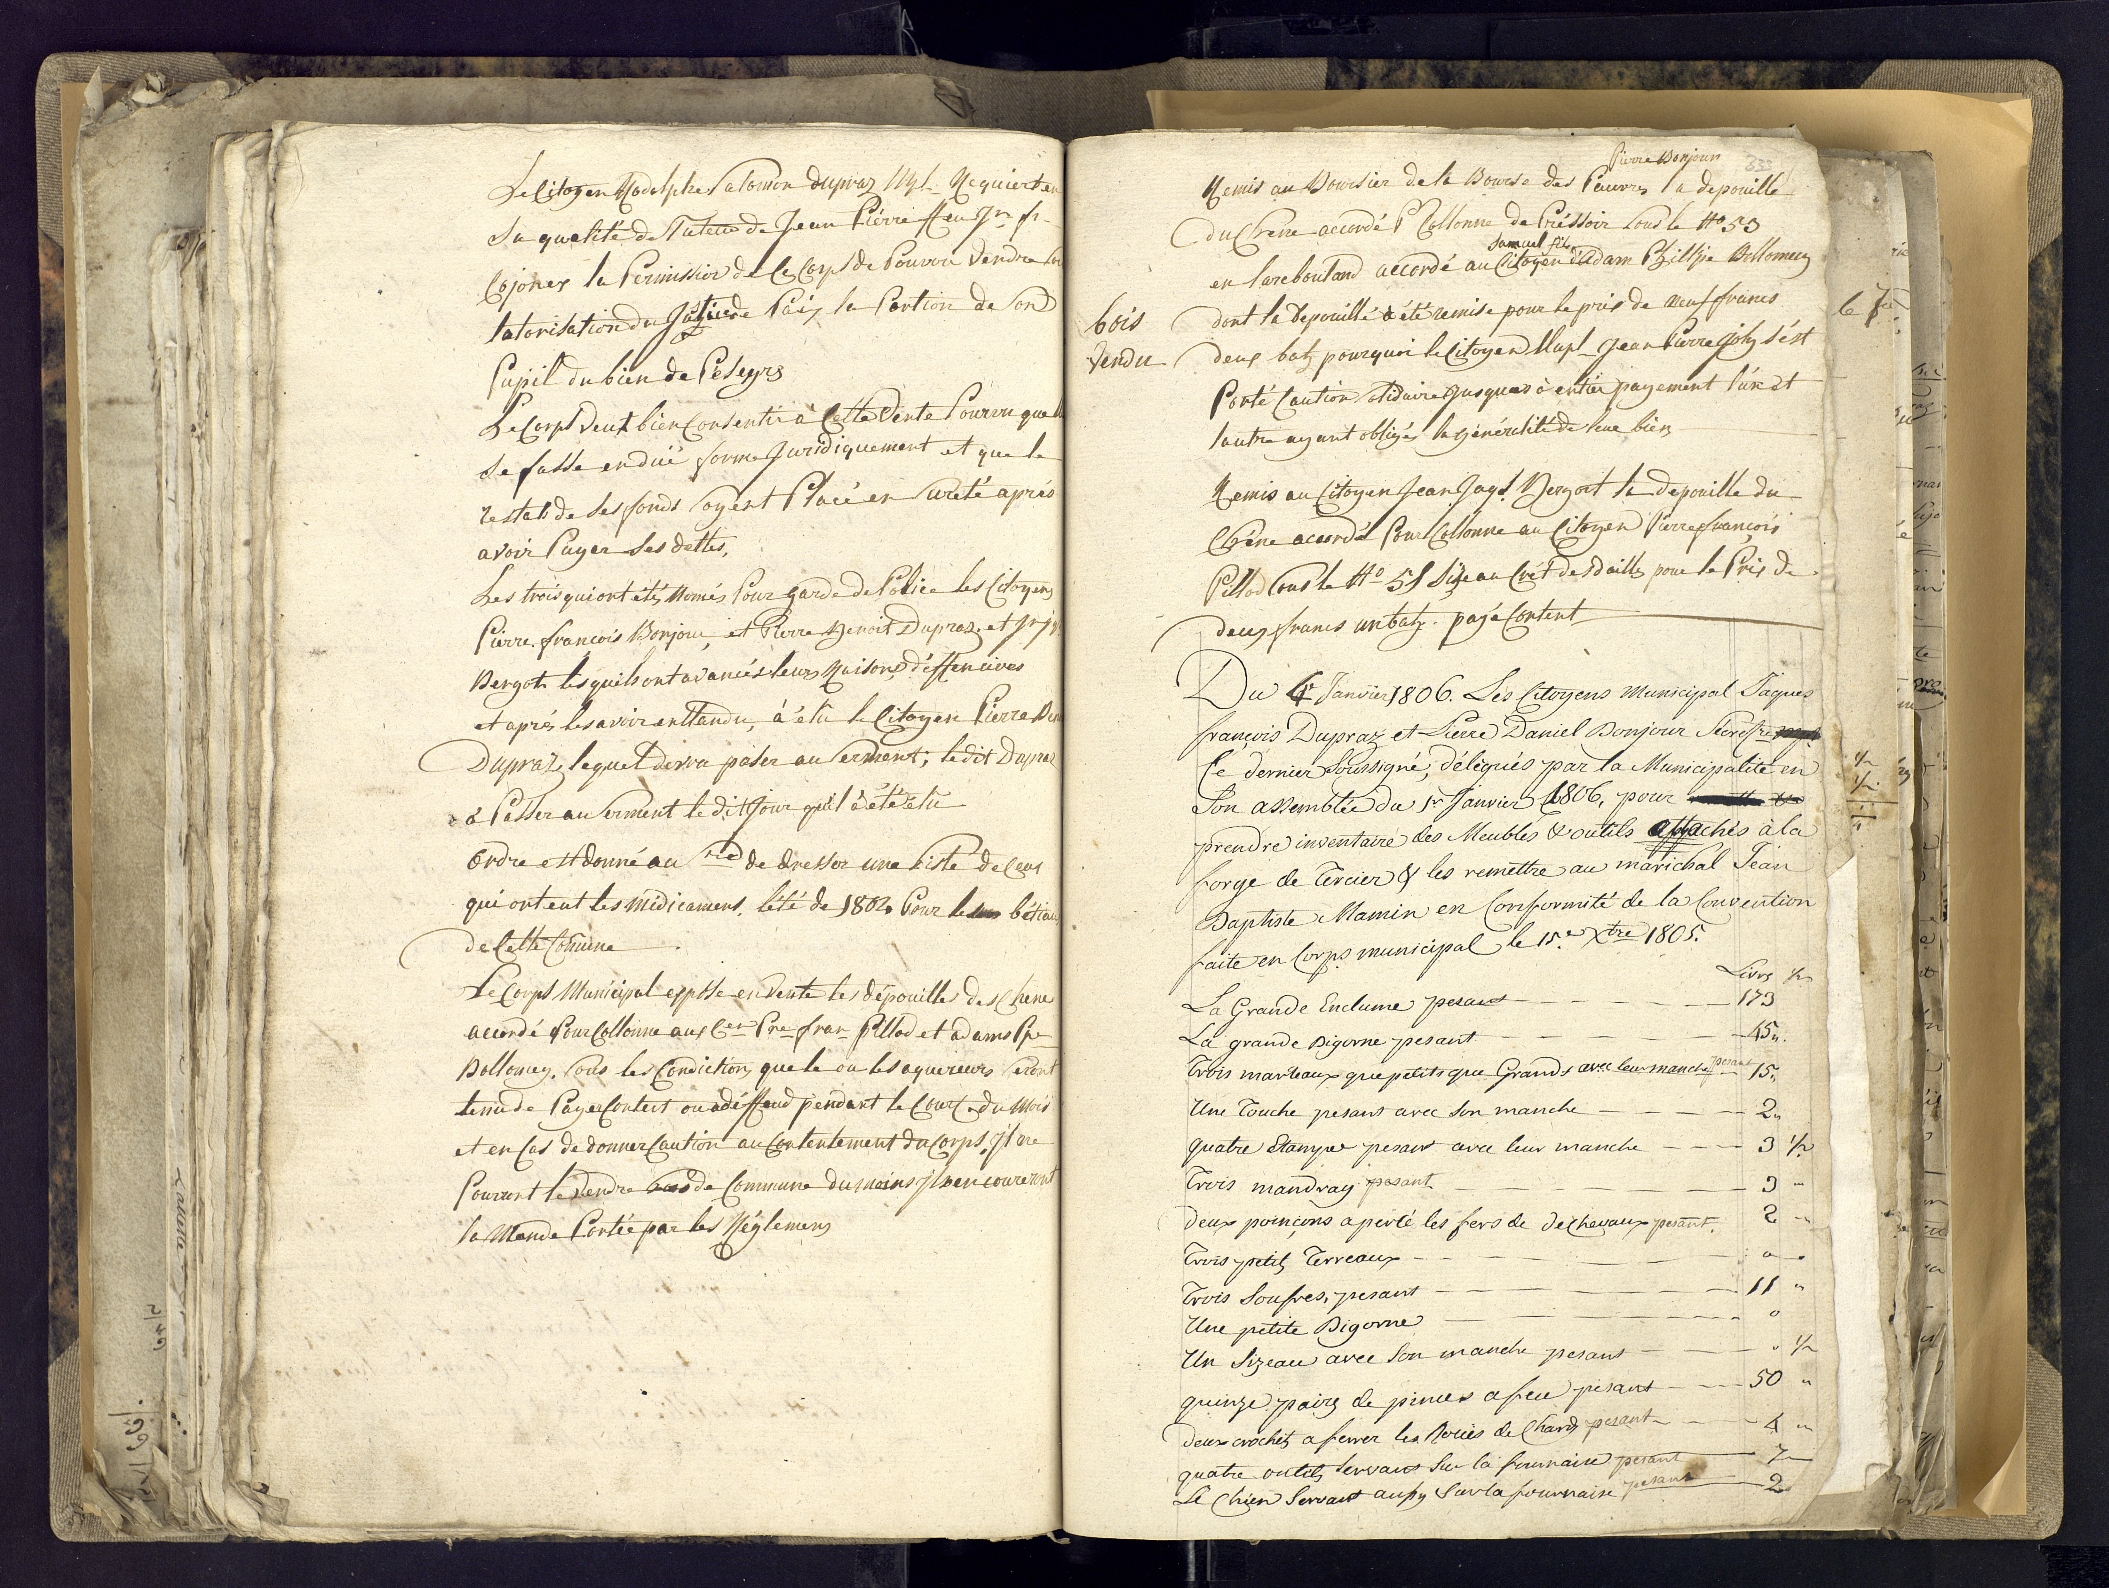 Le Citoyen Rodolphe Salomon dupraz Mpl. Requiert en
Sa qualité de Tuteur de Jean Pierre ffeu Jn fr
Cojonex la Permission de Ce Corps de Pouvoir Vendre
latorisation du Jugede Paix la Portion de Son
Pupil du bien de Peseyrs
Le Corps Veut bien Consentir à Cette Vente Pourvu que
Se fasse en düe forme Juridiquement et que le
restat de Ses fonds Soyent Placé en Sureté aprés
avoir Payer Ses dettes,
Les trois qui ont étés Només Pour garde de Police les Citoyens
Pierre françois Bonjour, et Pierre Benoit Dupraz, et Jn Jq
Bergot lesquels ont avancés leurs Raisons déffencives
et aprés les avoir enttandu, à élu le Citoyen Pierre Ben
Dupraz, lequel devra passer au Serment; ledit Dupraz
à Passer au Serment le dit Jour quil à été élu
Ordre est donné au Sred de dresser une Liste de Ceux
qui ont eut les médicamens. l'été de 1802 Pour les bétiaux
de Cette Comune
Le Corps Municipal expose en Vente les dépouilles des Chene
accordé Pour Collonne aux Cen Pre fran Pillod et adams Ppe
Dollomey, Sous les Condictions que le ou les aquereurs Seront
tenu de Payer Contert ou adéffaud pendant le Cour du Mois
et en Cas de donner Caution au Contentement du Corps, Jl ne
Pourront le Vendre de Commune du moins Jls en coureront
la Mande Portée par les Réglemens
333
Pierre Bonjour
Remis au Boursier de la Bourse des Pauvres la depouille
du Chene accordé Pr Collonne de Préssoir Sous le No 53
Samuel fils
en Lareboutand accordé au Citoyen d'Adam Phillipe Dollomey
bois
Vendu
dont la Depouille à été remise pour le pris de neuf francs
deux batz pourquoi le Citoyen Mupl Jean Pierre Joly s'est
Porté Caution Solidaire Jusques à entier payement l'un et
lautre ayant obligés la généralité de leur biens
Remis au Citoyen Jean Jaqs. Bergot la depouille du
Chêne accordé Pour Collonne au Citoyen Pierre françois
Pillod Sous le No 51 Size au Crét des dailles pour le Pris de
deux francs un batz. payé Content
Du Janvier 1806. Les Citoyens Municipal Jaques
françois Dupraz et Pierre Daniel Bonjour Secretre
Ce dernier Soussigné, délégués par la Municipalité en
Son assemblée du 1r Janvier 1806, pour
prendre inventaire des Meubles & outils attachés à la
forge de Cercier & les remettre au maréchal Jean
Baptiste Mamin en Conformité de la Convention
faite en Corps municipal le 15.e Xbre 1805.
Livre ½
La Grande Enclume pesant 173
La grande Bigorne pesant 45 "
Trois marteaux que petits que Grands avec leur manche pesant 15 "
Une Touche pesant avec Son manche 2 "
quatre Etampe pesant avec leur manche 3 ½
Trois mandray pesant 3 "
deux poinçons a percé les fers de de chevaux pesant. 2 "
Trois petits Terreaux " "
Trois Soufres, pesant 11 "
Une petite Bigorne "
Un Sizeau avec Son manche pesant " ½
quinze paires de pinces a feu pesant 50 "
deux crochets a ferrer les Roües de Chard pesant 4 "
quatre outils Servant Sur la fournaise pesant 7
Le Chien Servant aussy Sur la fournaise pesant 2